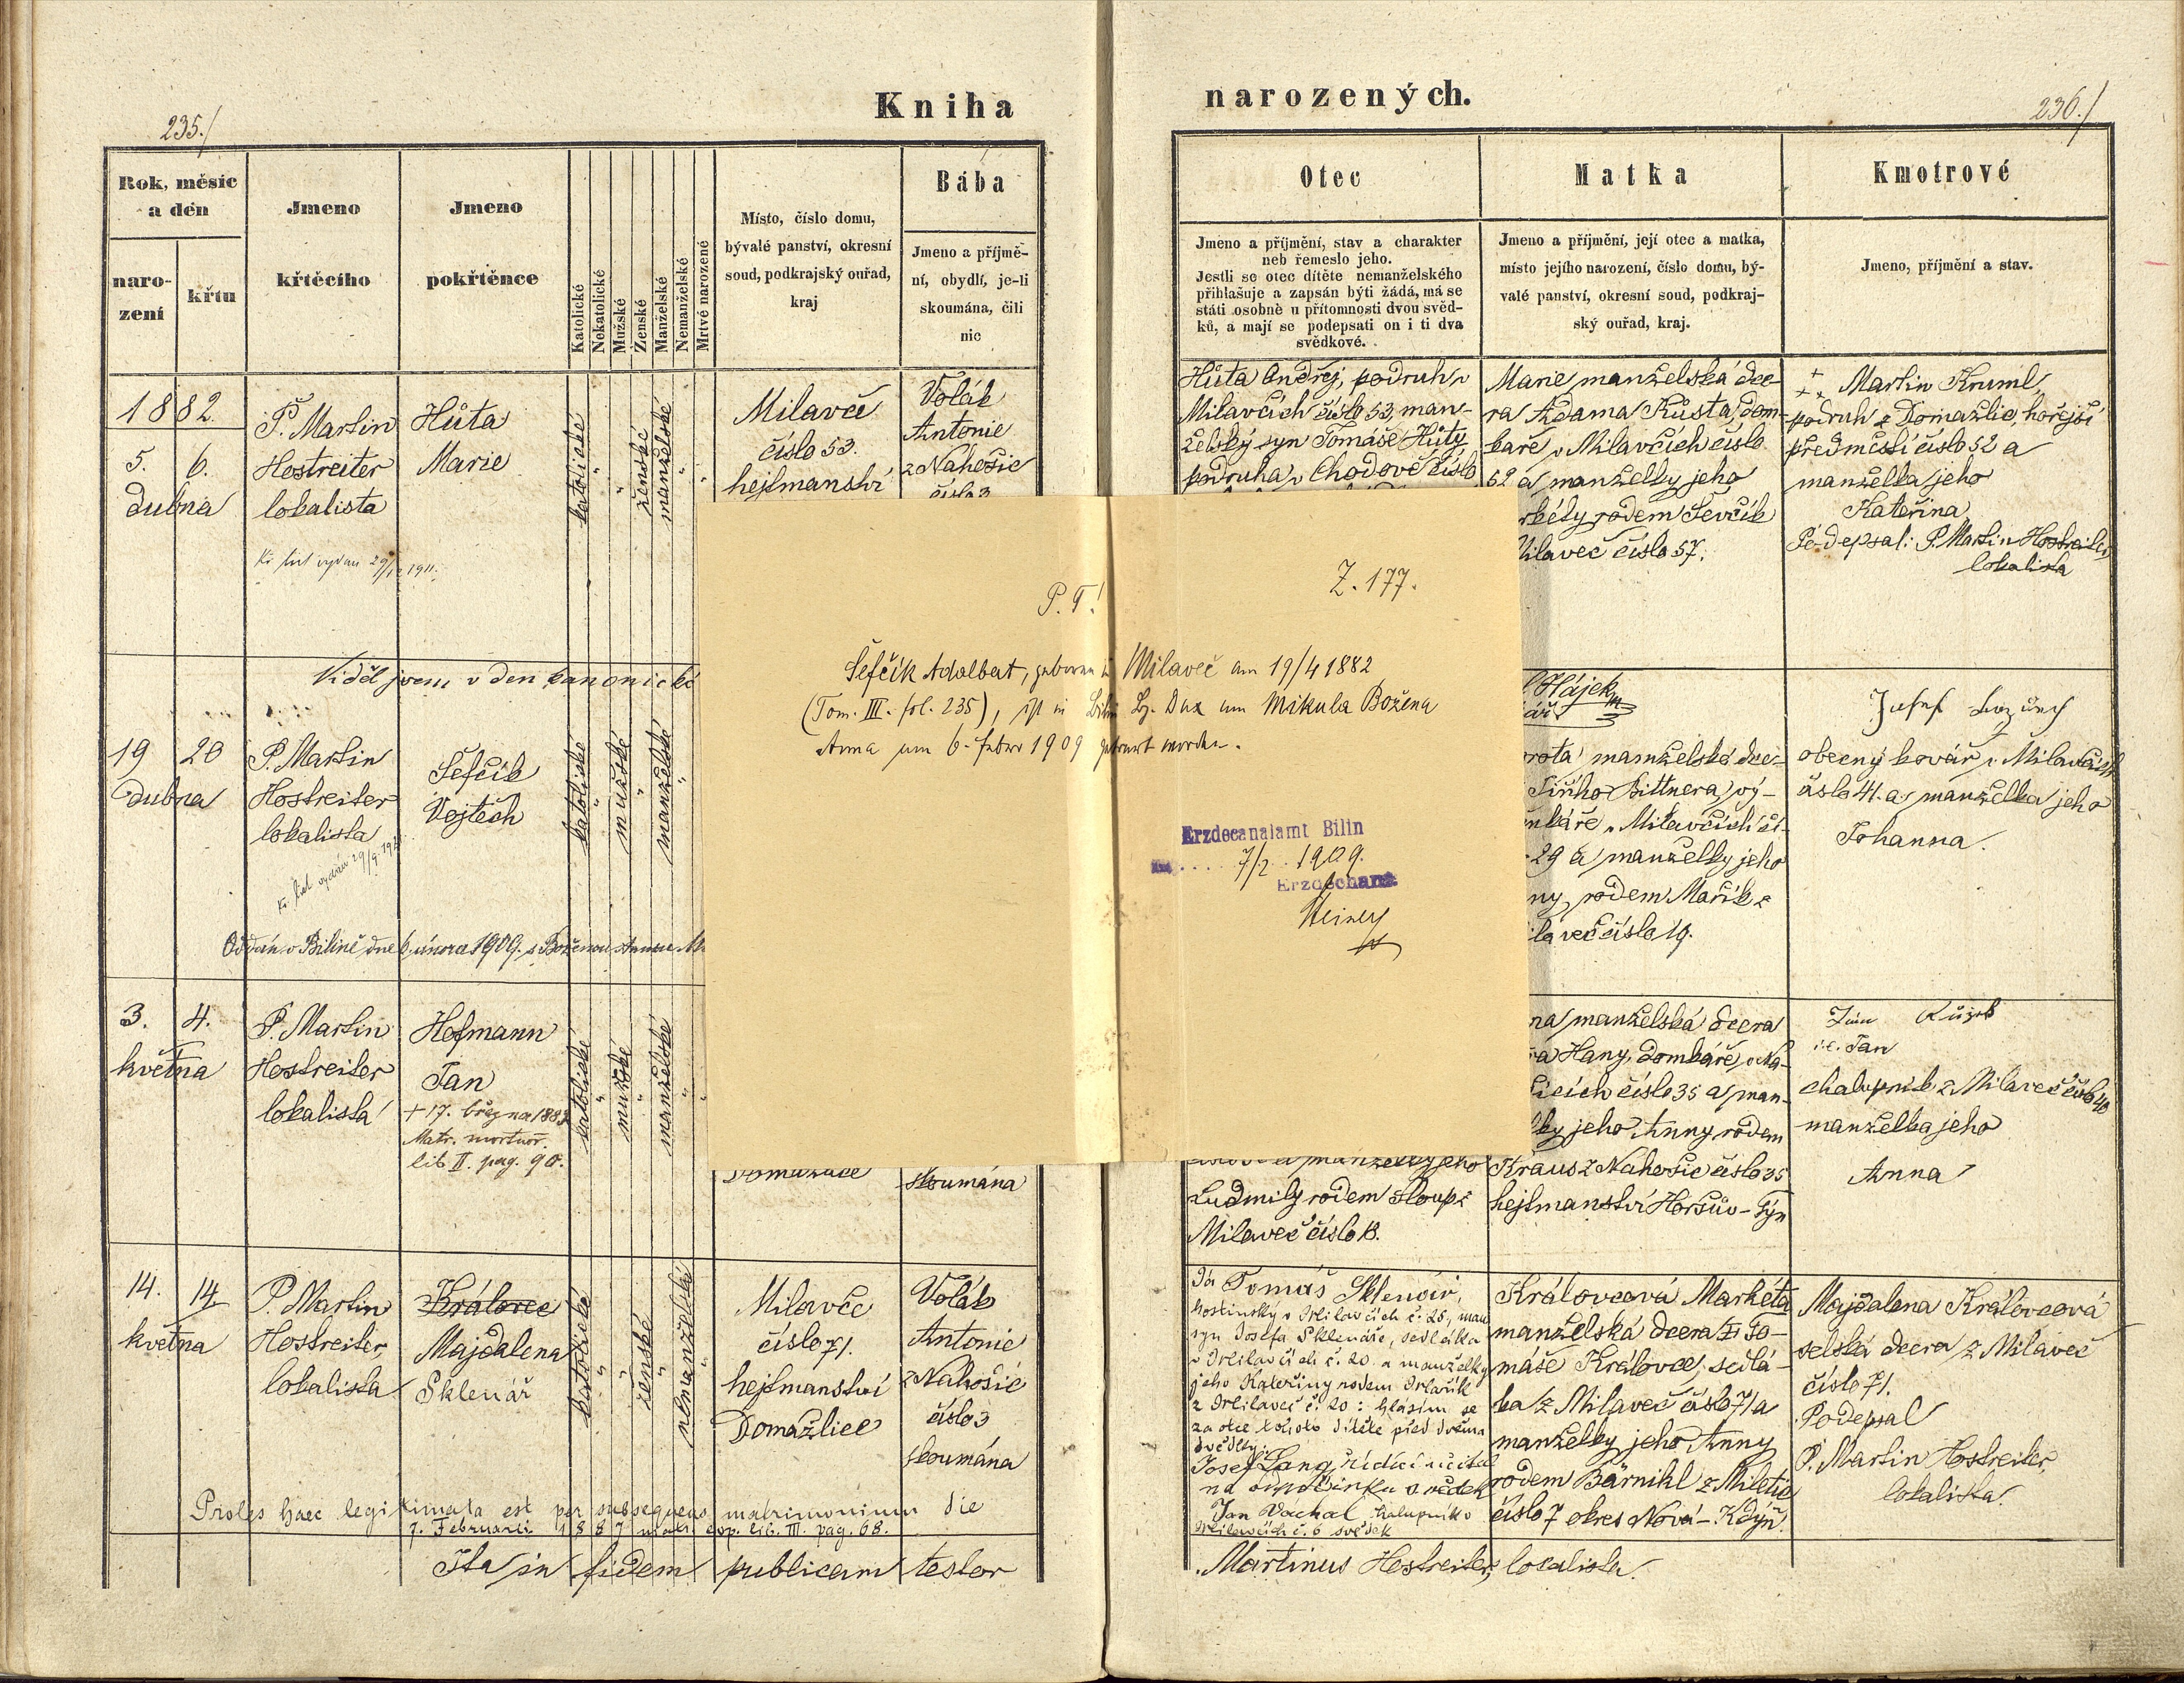 235./
Kniha
narozených.
236./
Rok, měsíc
a den
naro-
zení
křtu
Jmeno
křtěcího
Jmeno
pokřtěnce
Katolické
Nekatolické
Mužské
Ženské
Manželské
Nemanželské
Mrtvě narozené
Místo, číslo domu,
bývalé panství, okresní
soud, podkrajský ouřad,
kraj
Bába
Jmeno a příjmě-
ní, obydlí, je-li
skoumána, čili
nic
Otec
Jmeno a příjmění, stav a charakter
neb řemeslo jeho.
Jestli se otec dítěte nemanželského
přihlašuje a zapsán býti žádá, má se
státi osobně u přítomnosti dvou svěd-
ků, a mají se podepsati on i ti dva
svědkové.
Matka
Jmeno a příjmění, její otec a matka,
místo jejího narození, číslo domu, bý-
valé panství, okresní soud, podkraj-
ský ouřad, kraj.
Kmotrové
Jmeno, příjmění a stav.
1882.
5. 6.
dubna
P. Martin
Hostreiter
lokalista
Hůta
Marie
katolické
ženské
manželské
Milavče
číslo 53.
hejtmanství
Volák
Antonie
z Nahošic
číslo 3
Hůta Ondřej, podruh v
Milavčích číslo 53, man-
želský syn Tomáše Hůty
podruha v Chodově číslo
Marie manželská dce-
ra Adama Kůsta, dom-
káře v Milavčích číslo
52 a manželky jeho
rkéty rodem Ševčík
Milaveč číslo 57.
Martin Kruml
podruh z Domažlic, hořejší
předměstí číslo 52 a
manželka jeho
Kateřina
Podepsal: P. Martin Hostreiter
lokalista
Viděl jsem v den kanonické
Hájek
19 20
dubna
P. Martin
Hostreiter
lokalista
Šefčík
Vojtěch
katolické
mužské
manželské
Oddán v Bílině dne 6. února 1909. s Boženou Annou
rota manželská dce-
Jiřího Bittnera, vý-
nkáře v Milavčích čí-
29 a manželky jeho
ny, rodem Mařík z
ilaveč číslo 19.
Josef
obecný kovář v Milavčích
číslo 41. a manželka jeho
Johanna.
P. T.!
Z. 177.
Šefčík Adalbert, geboren in Milaveč am 19/4 1882
(Tom. III. fol. 235), ist in Bilin Bz. Dux am Mikula Božena
Anna am 6. Feber 1909 getraut worden.
Erzdecanalamt Bilin
7/2. 1909.
Erzdechant
3. 4.
května
P. Martin
Hostreiter
lokalista
Hofmann
Jan
+ 17. března 1883
Matr. mortuor.
lib II. pag. 90.
katolické
mužské
manželské
Domažlice
skoumána
a manželky jeho
Ludmily rodem Sloup z
Milaveč číslo 18.
na manželská dcera
ra Hany, domkáře v Na-
šicích číslo 35 a man-
lky jeho Anny rodem
Kraus z Nahošic číslo 35
hejtmanství Horšův-Týn
i.e. Jan
chalupník z Milaveč číslo 40
manželka jeho
Anna
14. 14
května
P. Martin
Hostreiter,
lokalista
Královec
Majdalena
Sklenář
katolické
ženské
nemanželské
Milavče
číslo 71.
hejtmanství
Domažlice
Volák
Antonie
z Nahošic
číslo 3
skoumána
Já Tomáš Sklenář,
hostinský v Milavčích č. 25, man.
syn Josefa Sklenáře, sedláka
v Milavčích č. 20. a manželky
jeho Kateřiny rodem Mařík
z Milaveč č. 20: hlásím se
za otce tohoto dítěte před dvěma
svědky.
Josef Lang, řídící učitel
na odpočinku svědek
Jan Váchal chalupník v
Milavčích č. 6 svědek
Královcová Markéta
manželská dcera To-
máše Královce, sedlá-
ka z Milaveč číslo 71 a
manželky jeho Anny
rodem Bärnihl z Miletic
číslo 7 okres Nová-Kdyň.
Majdalena Královcová
selská dcera z Milaveč
číslo 71.
Podepsal
P. Martin Hostreiter,
lokalista.
Proles haec legitimata est per subsequens matrimonium die
7. Februarii 1887 matr. cop. lib. III. pag. 68.
Ita in fidem publicam testor
Martinus Hostreiter, lokalista.